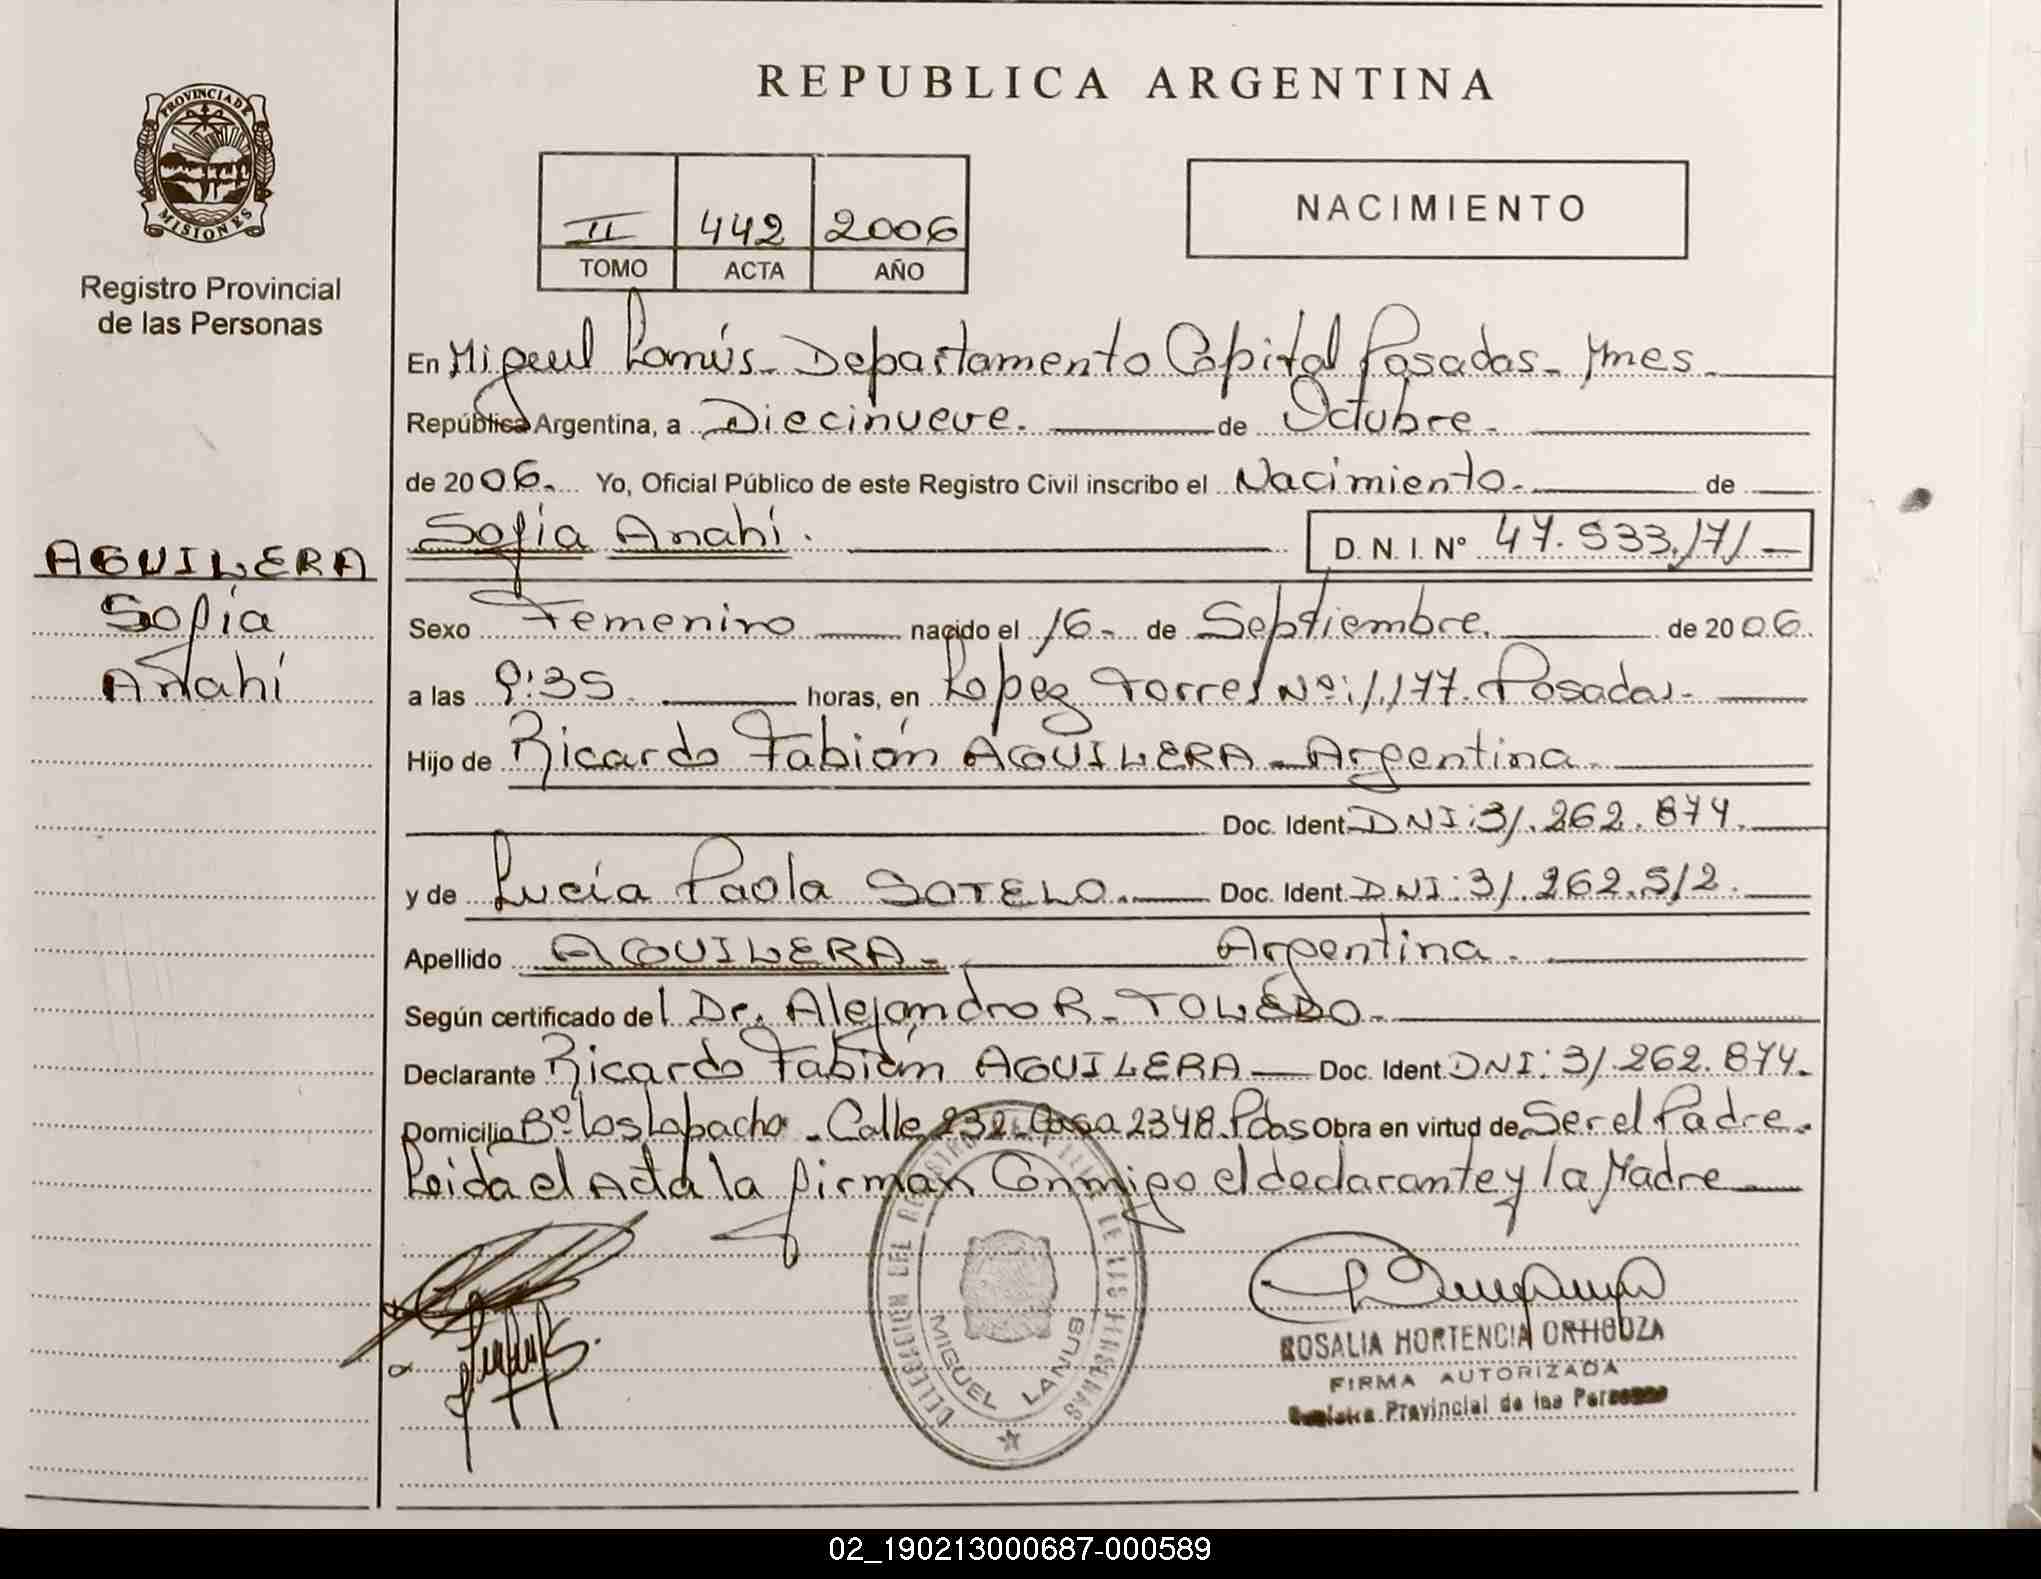 REPUBLICA ARGENTINA
PROVINCIA DE
MISIONES
Registro Provincial
de las Personas
II 442 2006
TOMO ACTA AÑO
NACIMIENTO
En Miguel Lanús - Departamento Capital Posadas - Mnes.
República Argentina, a Diecinueve. de Octubre.
de 2006. Yo, Oficial Público de este Registro Civil inscribo el Nacimiento. de
Sofia Anahí. D. N. I. Nº 47.533.171
AGUILERA
Sofía
Anahí
Sexo Femenino nacido el 16 - de Septiembre. de 2006.
a las 9:35. horas, en Lopez Torres Nº: 1.177. Posadas.
Hijo de Ricardo Fabián AGUILERA - Argentina.
Doc. Ident. DNI: 31.262.874.
y de Lucía Paola SOTELO. Doc. Ident. DNI: 31.262.512.
Apellido AGUILERA - Argentina.
Según certificado del Dr. Alejandro R. TOLEDO.
Declarante Ricardo Fabián AGUILERA - Doc. Ident. DNI: 31.262.874.
Domicilio Bº los Lapacho - Calle 232 - Casa 2348. Pdas Obra en virtud de Ser el Padre.
Leida el Acta la firman Conmigo el declarante y la Madre
DELEGACION DEL REGISTRO DE LAS PERSONAS
MIGUEL LANUS
ROSALIA HORTENCIA ORHOUZA
FIRMA AUTORIZADA
Provincial de las Personas
02_190213000687-000589